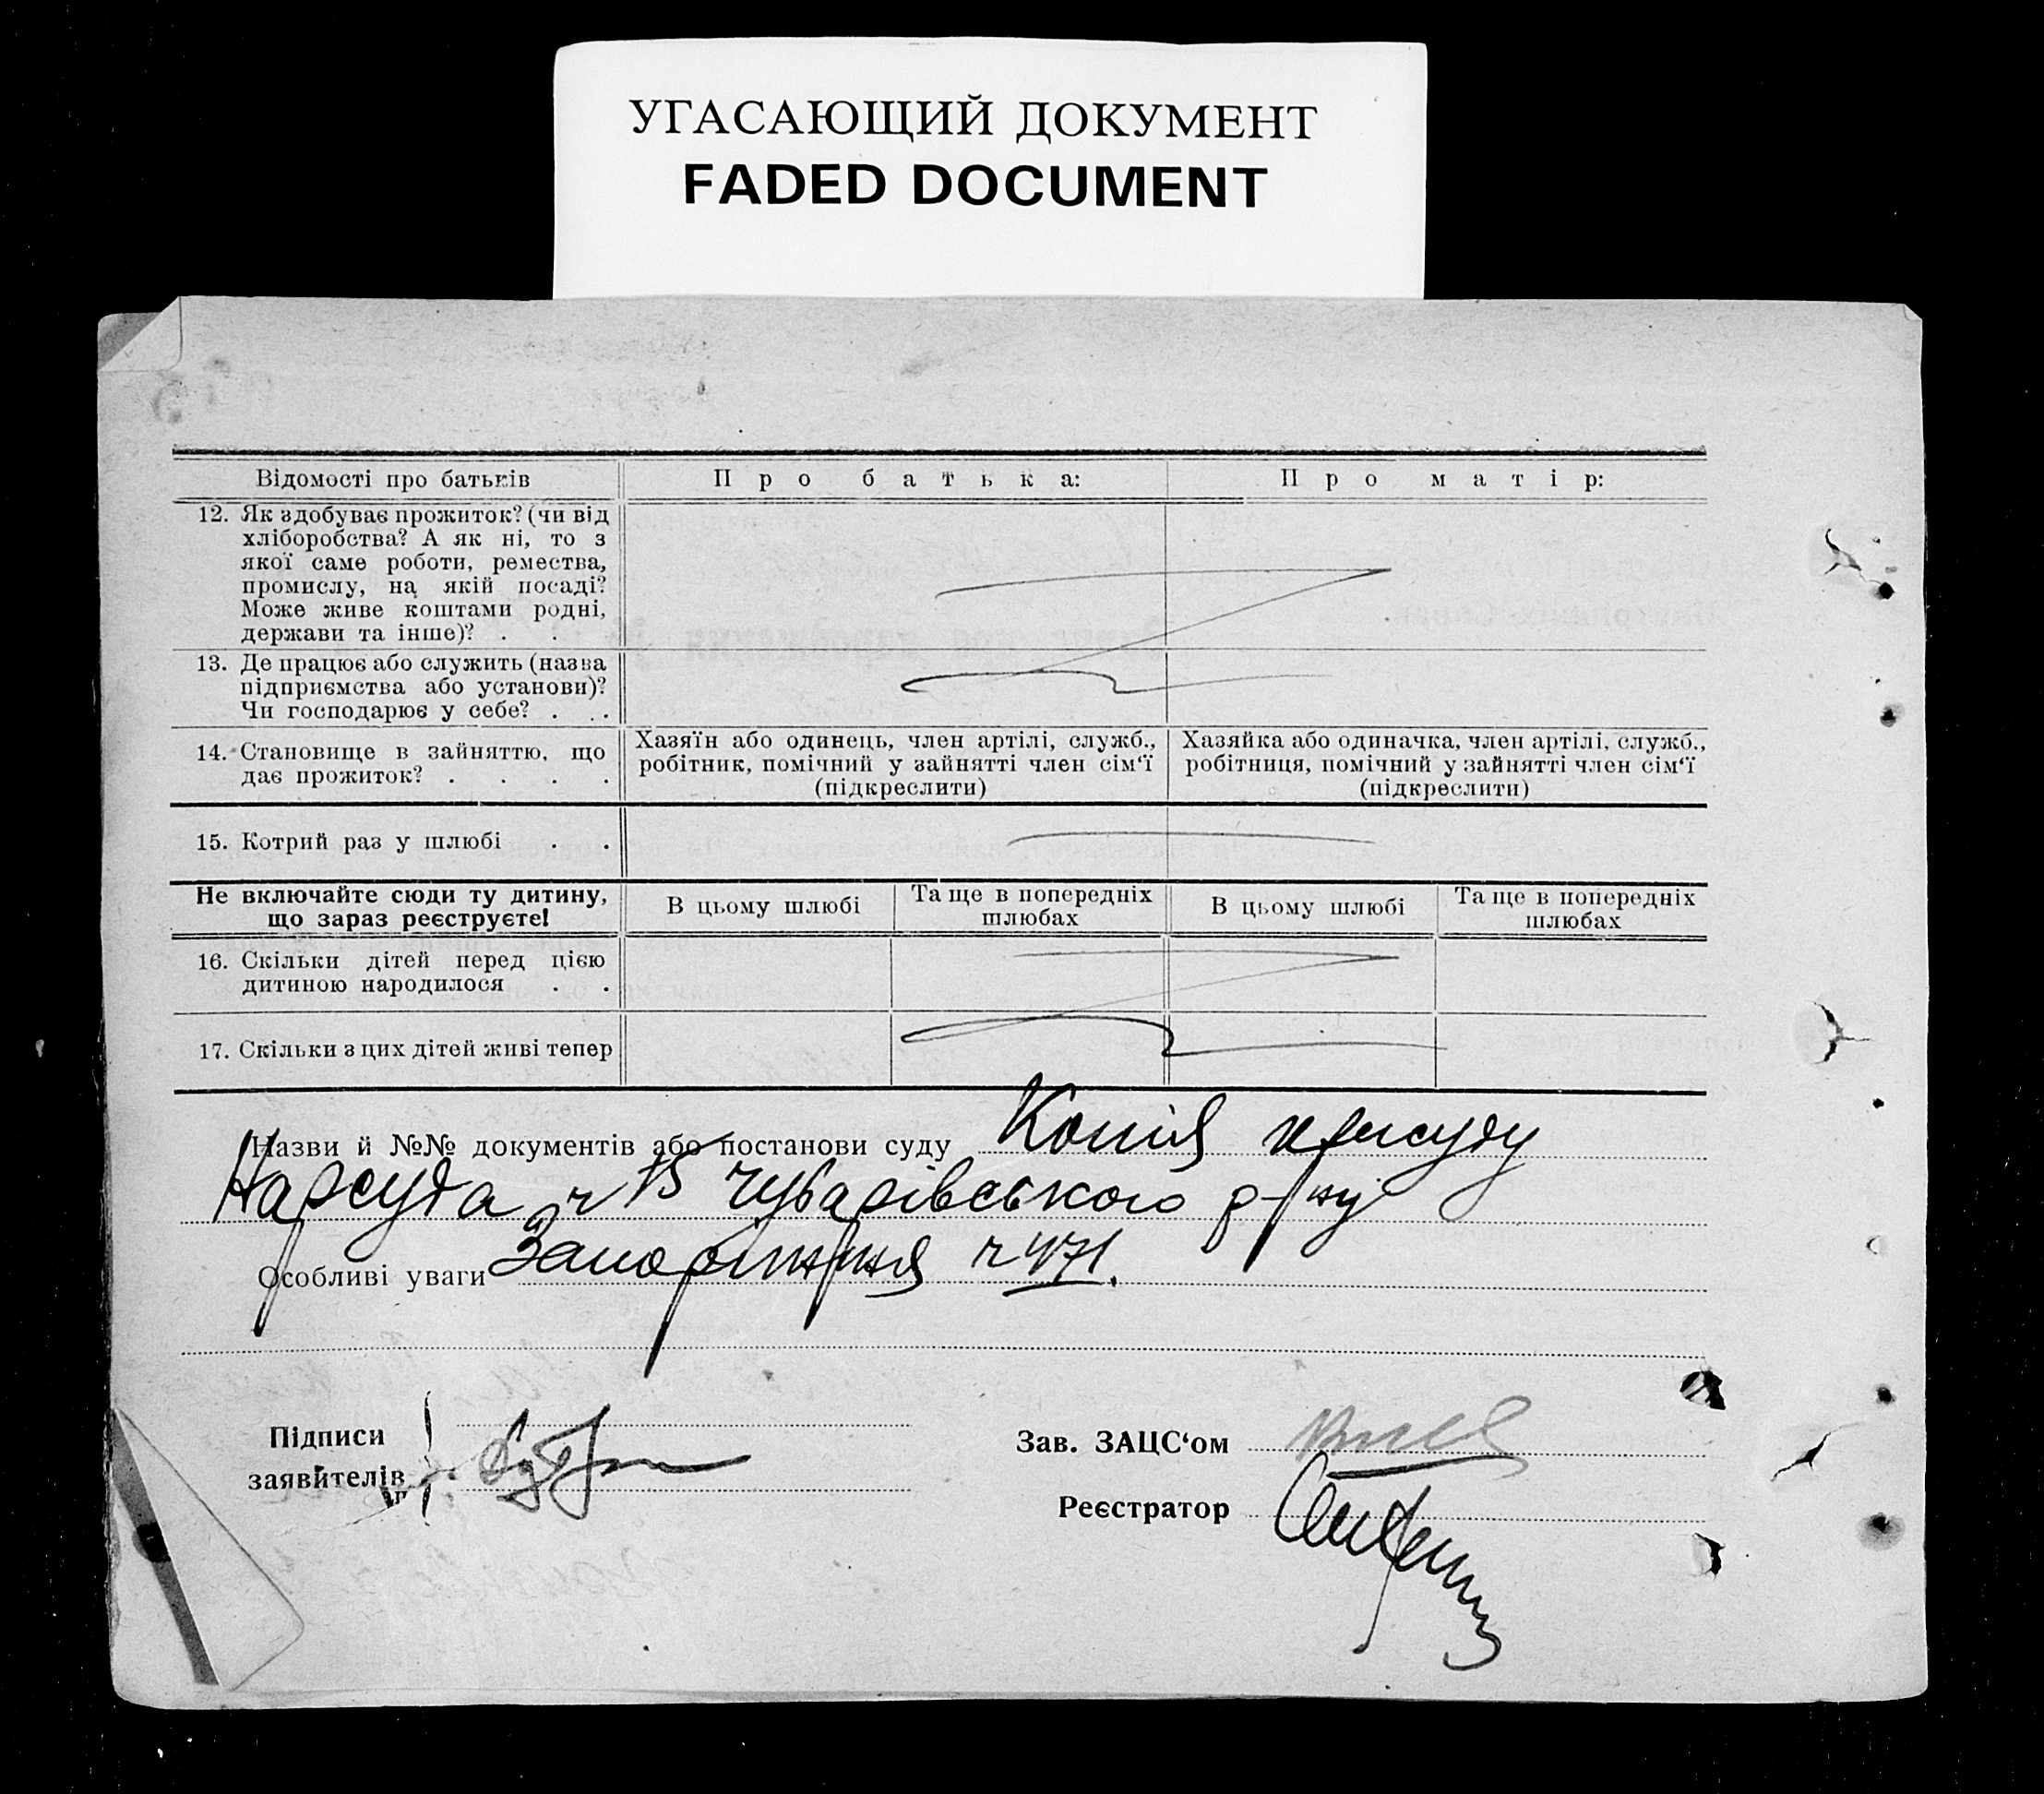 УГАСАЮЩИЙ ДОКУМЕНТ
FADED DOCUMENT
Відомості про батьків
Про батька:
Про матір:
12. Як здобуває прожиток? (чи від
хліборобства? А як ні, то з
якої саме роботи, ремества,
промислу, на якій посаді?
Може живе коштами родні,
держави та інше)? . .
13. Де працює або служить (назва
підприємства або установи)?
Чи господарює у себе? . . .
14. Становище в зайняттю, що
дає прожиток? . . . .
Хазяїн або одинець, член артілі, служб.,
робітник, помічний у зайнятті член сім‘ї
(підкреслити)
Хазяйка або одиначка, член артілі, служб.,
робітниця, помічний у зайнятті член сім‘ї
(підкреслити)
15. Котрий раз у шлюбі . .
Не включайте сюди ту дитину,
що зараз реєструєте!
В цьому шлюбі
Та ще в попередніх
шлюбах
В цьому шлюбі
Та ще в попередніх
шлюбах
16. Скільки дітей перед цією
дитиною народилося . .
17. Скільки з цих дітей живі тепер
Назви й №№ документів або постанови суду Копія присуду
Нарсуда ч 15 Чубарівського р-ну
Особливі уваги Запоріжжя ч 471.
Підписи
заявителів
Зав. ЗАЦС‘ом
Реєстратор